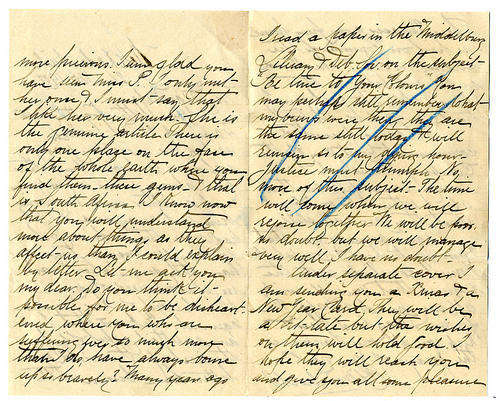 more precious. I am glad you
have seen Miss P. I only met
her once, & I must say that
I like her very much. She is
the genuine article. There is
only one place on the face
of the whole earth where you
find them these gems. & that
is, South Africa. I know now
that you will understand
more about things as they
affect us than I could explain
by letter. Let me ask you
my dear, do you think it
possible for me to be disheart-
ened, where you who are
suffering so much more
than I do have always borne
up so bravely? Many years ago
I read a paper in the Middelburg
Literary & Deb. Soc. on the subject
"Be true to your Colours" You
may perhaps still remember what
my views were then, they are
the same still today & will
remain so to my dying hour.
Justice must triumph. No
more of this subject. The time
will come when we will
rejoice together. We will be poor
no doubt, but we will manage
very well I have no doubt.
Under separate cover I
am sending you a Xmas & a
New Year Card. They will be
a bit late but the wishes
on them will hold good. I
hope they will reach you
and give you all some pleasure